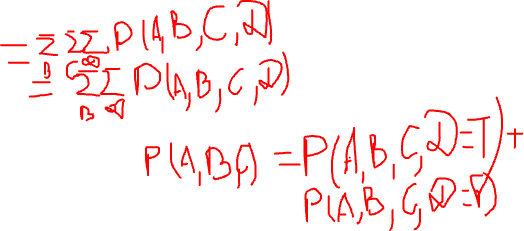 = Σ Σ Σ P(A,B,C,D)
B C D
= Σ Σ P(A,B,C,D)
B D
P(A,B,C) = P(A,B,C,D=T) +
P(A,B,C,D=F)